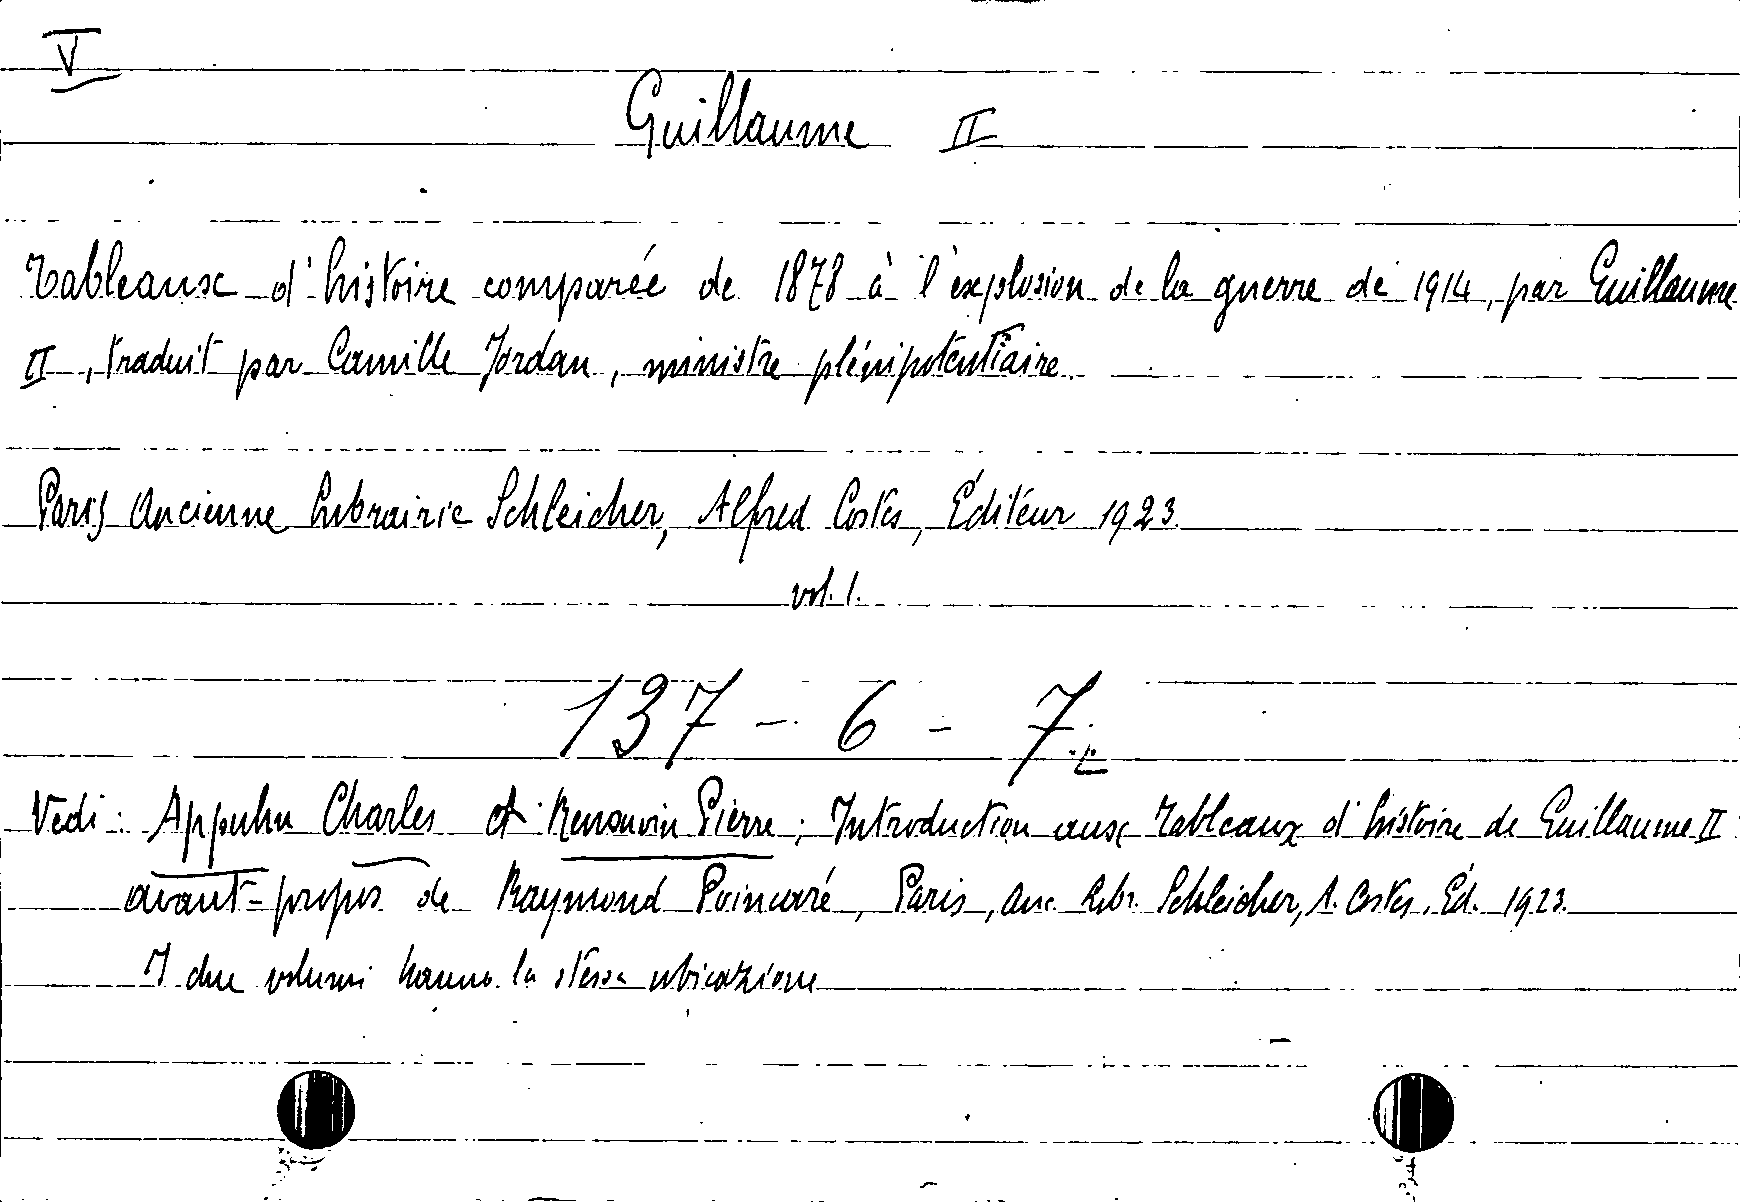 V
Guillaume II
Tableaux d'histoire comparée de 1878 à l'explosion de la guerre de 1914, par Guillaume
II, traduit par Camille Jordan, ministre plénipotentiaire.
Paris Ancienne Librairie Schleicher, Alfred Costes, Éditeur 1923.
vol. 1.
137 - 6 - 7
Vedi: Appuhn Charles et Renouvin Pierre; Introduction aux Tableaux d'histoire de Guillaume II
avant-propos de Raymond Poincaré, Paris, Anc. Libr. Schleicher, A. Costes, Éd. 1923.
I due volumi hanno la stessa ubicazione